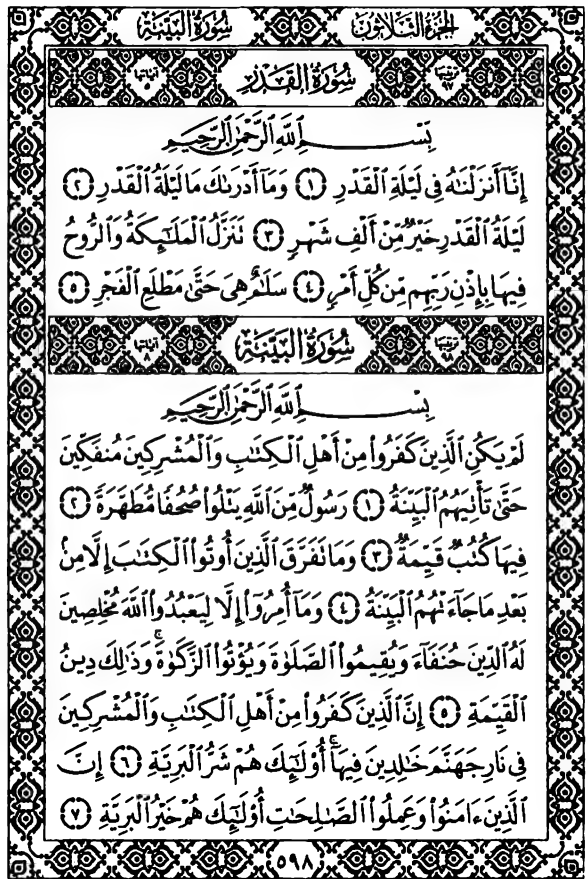 الجزء الثلاثون سورة البينة
ترتيبها ٩٧ سُورَةُ الْقَدْرِ آياتها ٥
بِسْمِ ٱللَّهِ ٱلرَّحْمَٰنِ ٱلرَّحِيمِ
إِنَّآ أَنزَلْنَٰهُ فِى لَيْلَةِ ٱلْقَدْرِ ﴿١﴾ وَمَآ أَدْرَىٰكَ مَا لَيْلَةُ ٱلْقَدْرِ ﴿٢﴾
لَيْلَةُ ٱلْقَدْرِ خَيْرٌ مِّنْ أَلْفِ شَهْرٍ ﴿٣﴾ تَنَزَّلُ ٱلْمَلَٰٓئِكَةُ وَٱلرُّوحُ
فِيهَا بِإِذْنِ رَبِّهِم مِّن كُلِّ أَمْرٍ ﴿٤﴾ سَلَٰمٌ هِىَ حَتَّىٰ مَطْلَعِ ٱلْفَجْرِ ﴿٥﴾
ترتيبها ٩٨ سُورَةُ الْبَيِّنَةِ آياتها ٨
بِسْمِ ٱللَّهِ ٱلرَّحْمَٰنِ ٱلرَّحِيمِ
لَمْ يَكُنِ ٱلَّذِينَ كَفَرُوا۟ مِنْ أَهْلِ ٱلْكِتَٰبِ وَٱلْمُشْرِكِينَ مُنفَكِّينَ
حَتَّىٰ تَأْتِيَهُمُ ٱلْبَيِّنَةُ ﴿١﴾ رَسُولٌ مِّنَ ٱللَّهِ يَتْلُوا۟ صُحُفًا مُّطَهَّرَةً ﴿٢﴾
فِيهَا كُتُبٌ قَيِّمَةٌ ﴿٣﴾ وَمَا تَفَرَّقَ ٱلَّذِينَ أُوتُوا۟ ٱلْكِتَٰبَ إِلَّا مِنۢ
بَعْدِ مَا جَآءَتْهُمُ ٱلْبَيِّنَةُ ﴿٤﴾ وَمَآ أُمِرُوٓا۟ إِلَّا لِيَعْبُدُوا۟ ٱللَّهَ مُخْلِصِينَ
لَهُ ٱلدِّينَ حُنَفَآءَ وَيُقِيمُوا۟ ٱلصَّلَوٰةَ وَيُؤْتُوا۟ ٱلزَّكَوٰةَ ۚ وَذَٰلِكَ دِينُ
ٱلْقَيِّمَةِ ﴿٥﴾ إِنَّ ٱلَّذِينَ كَفَرُوا۟ مِنْ أَهْلِ ٱلْكِتَٰبِ وَٱلْمُشْرِكِينَ
فِى نَارِ جَهَنَّمَ خَٰلِدِينَ فِيهَآ ۚ أُو۟لَٰٓئِكَ هُمْ شَرُّ ٱلْبَرِيَّةِ ﴿٦﴾ إِنَّ
ٱلَّذِينَ ءَامَنُوا۟ وَعَمِلُوا۟ ٱلصَّٰلِحَٰتِ أُو۟لَٰٓئِكَ هُمْ خَيْرُ ٱلْبَرِيَّةِ ﴿٧﴾
٥٩٨